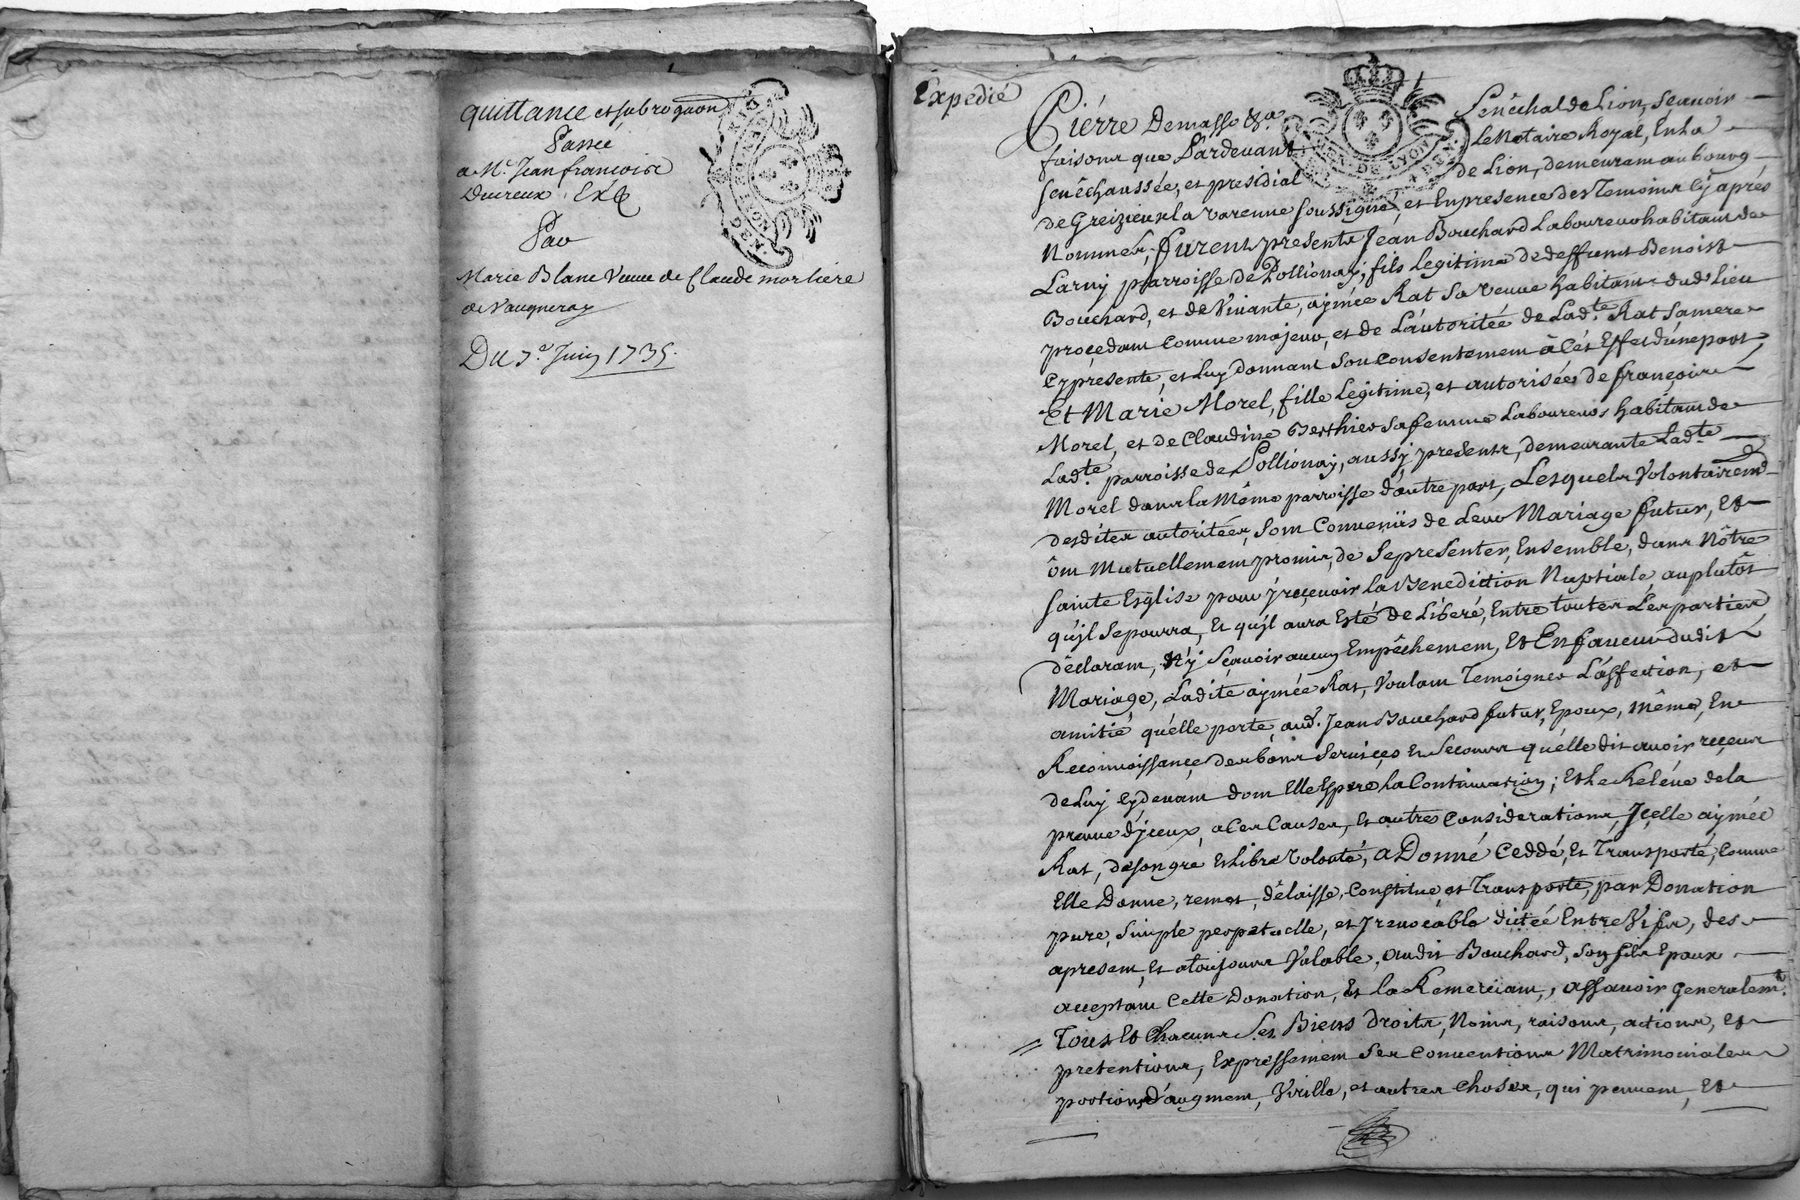 quittance et subrogaon
Passée
a Me. Jean francoise
Ducreux
Par
Marie Blanc Veuve de Claude morliere
de Vaugneray
Du 7e. Juin 1735.
Expedié
Pierre Demasso &a. Senêchal de Lion, Scavoir
faisons que Pardevant Le Notaire Royal, En la
senêchaussée, et presidial de Lion, demeurant au bourg
de Greizieu la varenne soussigné, et En presence des Temoins Cy aprés
Nommés, furent presents Jean Bouchard Laboureur habitant de
Larny parroisse de Pollionay, fils Legitime de deffunt Benoist
Bouchard, et de Viuante, aymée Rat Sa Veuve habitants dud. Lieu
proçedant Comme majeur, et de L'autoritée de Ladte. Rat Sa mere
Cy presente, et Luy donnant Son Consentement à Cét Effet d'une part,
Et Marie Morel, fille Légitime, et autorisée de françois
Morel, et de Claudine Berthier sa femme Laboureurs habitants de
Ladte. parroisse de Pollionay, aussy presents, demeurante Ladte.
Morel dans la Même parroisse d'autre part, Lesquels Volontairemt
desdites autoritées, Sont Convenüs de Leur Mariage futur, Et
ônt Mutuellement promis, de Se presenter, Ensemble, dans Nôtre
Sainte Esglise pour y reçevoir la Benediction Nuptiale au plutôst
qu'jl Se pourra, Et qu'jl aura Esté de Liberé, Entre toutes Les parties
dêclarant, N'y Sçavoir aucun Empêchement, Et En faveur dudit
Mariage, Ladite aymée Rat, Voulant Temoigner L'affection, et
amitié qu'elle porte, aud. Jean Bouchard futur, Epoux, même, En
Reconnoissançe des bons Serviçes Et Secours qu'elle dit avoir reçeus
de Luy Cy devant dont Elle Espere La Continuation; Et Le Relévé de la
preuve d'jceux, a Ces Causes, Et autres Considerations, Jçelle aymée
Rat, de son gré Et Libre Volonté, a Donné Ceddé, Et Transporté, Comme
Elle Donne, remet, dêlaisse, Constitue et Transporte, par Donation
pure, Simple perpetuelle, et Jrrevocable ditée Entre Vifs, des
apresent, Et a toujours Valable, audit Bouchard, Son fils Epoux
acceptant Cette Donation, Et la Remerciant, assavoir Generalemt.
Tous Et Chacuns Ses Biens droits, Noms, raisons, actions, Et
pretentions, Expressement Ses Conventions Matrimoniales
portions d'augment, Virille, et autres Choses, qui peuvent, Et